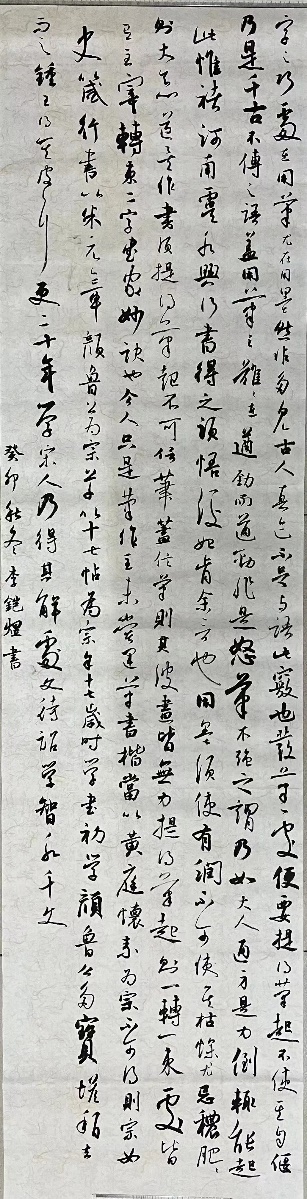 字之巧處在用筆尤在用墨然非多見古人真迹不足與語此竅也發筆處便要提得筆起不使其自偃
乃是千古不傳之語蓋用筆之難難在遒勁而遒勁非是怒筆木強之謂乃如大人通身是力倒輒能起
此惟褚河南虞永興行書得之須悟後始肯余言也用墨須使有潤不可使其枯燥尤忌穠肥肥
則大惡道矣作書須提得筆起不可信筆蓋信筆則其波畫皆無力提得筆起則一轉一束處皆
有主宰轉束二字書家妙訣也今人只是筆作主未嘗運筆書楷當以黃庭懷素為宗不可得則宗女
史箴行書以米元章顏魯公為宗草以十七帖為宗年十七歲時學書初學顏魯公多寶塔稍去
而之鍾王得其皮耳更二十年學宋人乃得其解處文待詔學智永千文
癸卯秋冬李鎧煋書